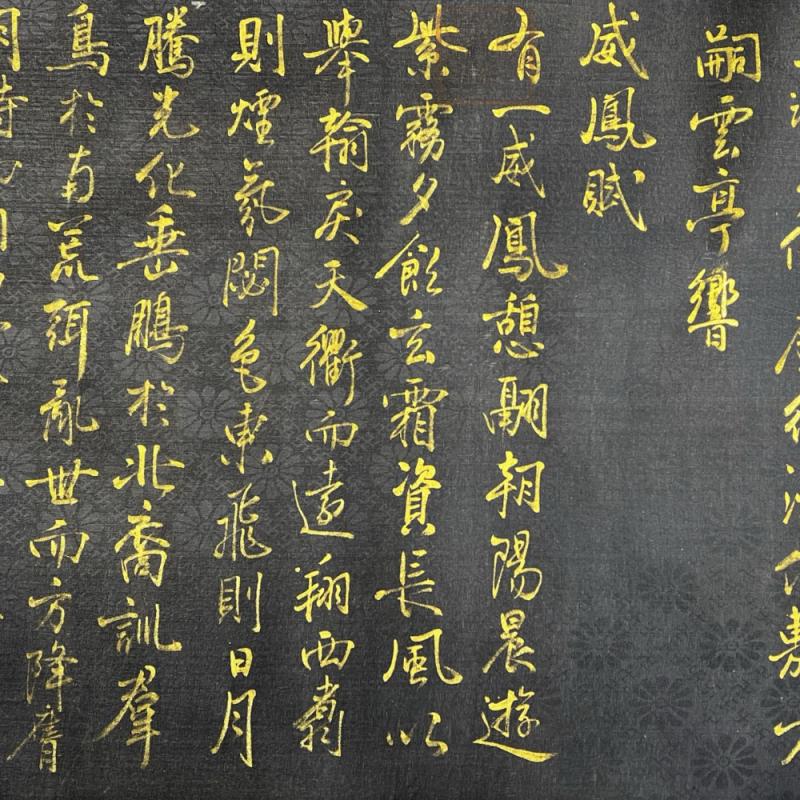 嗣雲亭響
威鳳賦
有一威鳳憩翮朝陽晨遊
紫霧夕飲玄霜資長風以
舉翰戾天衢而遠翔西翥
則煙氛閟色東飛則日月
騰光化垂鵬於北裔訓羣
鳥於南荒弭亂世而方降膺